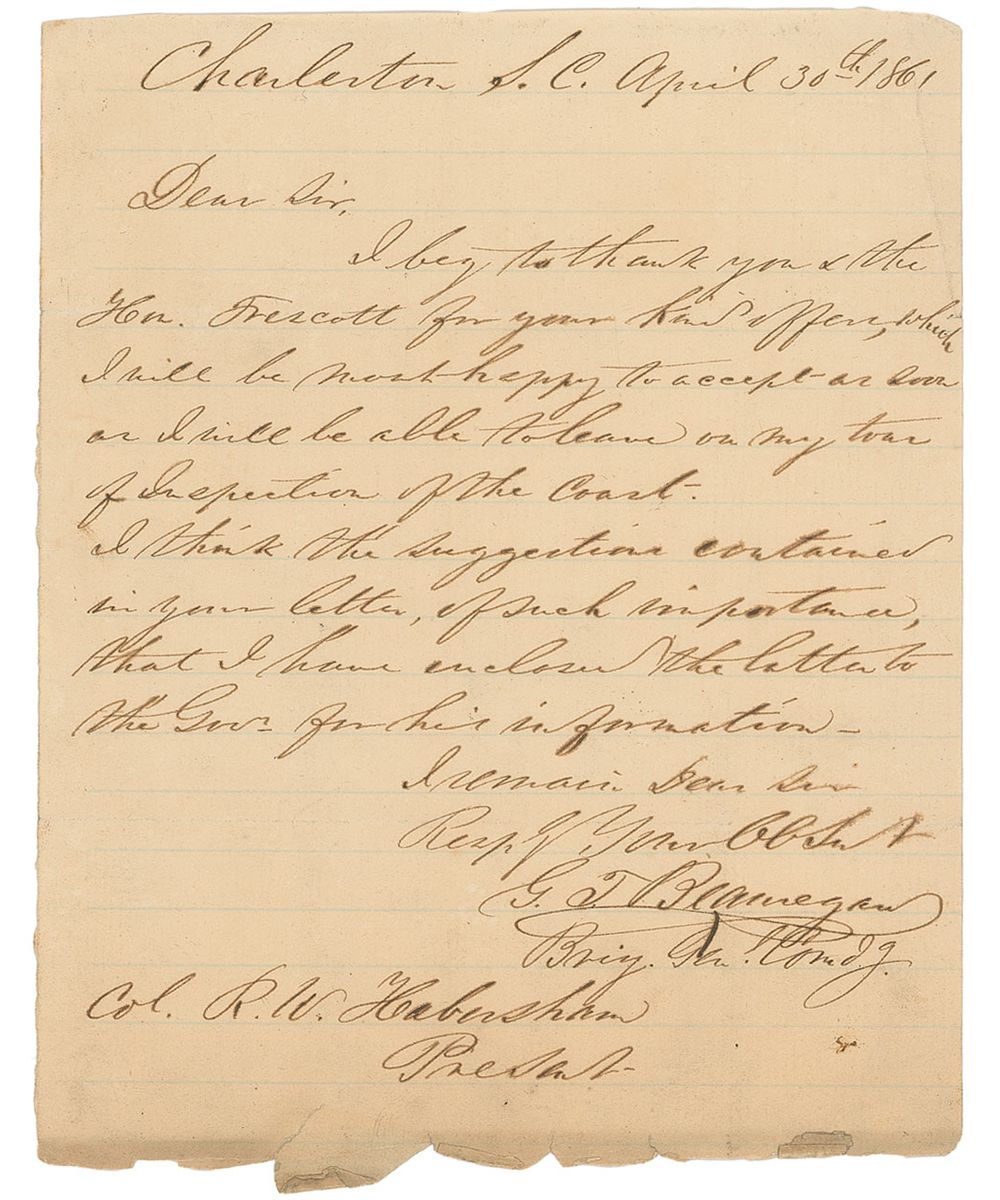 Charleston S. C. April 30th 1861
Dear Sir,
I beg to thank you & the
Hon. Trescott for your kind offer, which
I will be most happy to accept as soon
as I will be able to leave on my tour
of Inspection of the Coast.
I think the suggestions contained
in your letter, of such importance,
that I have enclosed the latter to
the Govr for his information –
I remain Dear Sir
Respy Your Ob Svt
G. T. Beauregard
Brig. Gen. Comdg.
Col. R. W. Habersham
Present